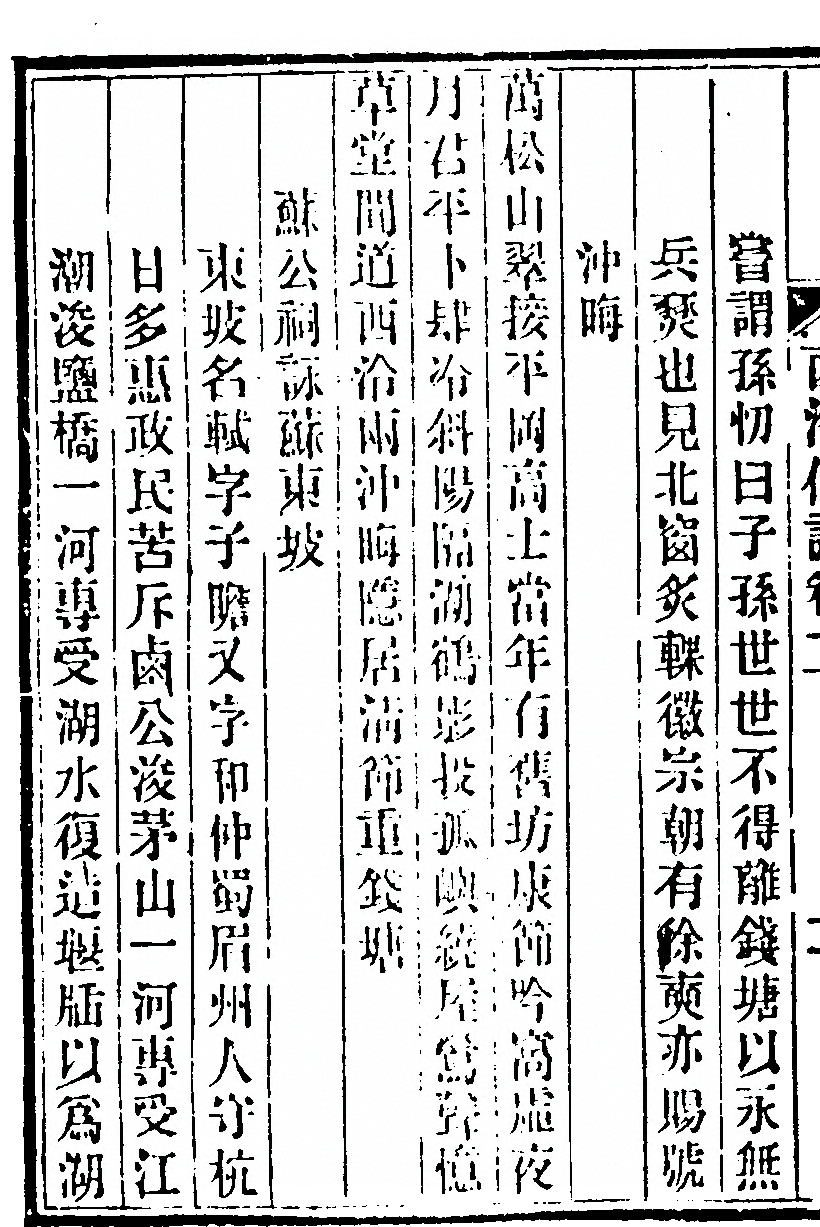 嘗謂孫忉曰子孫世世不得離錢塘以永無
兵燹也見北窗炙輠徽宗朝有徐奭亦賜號
沖晦
萬松山翠接平岡高士當年有舊坊康節吟窩虛夜
月君平卜肆冷斜陽臨湖鶴影投孤嶼繞屋鶯聲憶
草堂聞道西泠兩沖晦隱居清節重錢塘
蘇公祠詠蘇東坡
東坡名軾字子瞻又字和仲蜀眉州人守杭
日多惠政民苦斥鹵公浚茅山一河專受江
潮浚鹽橋一河專受湖水復造堰牐以爲湖